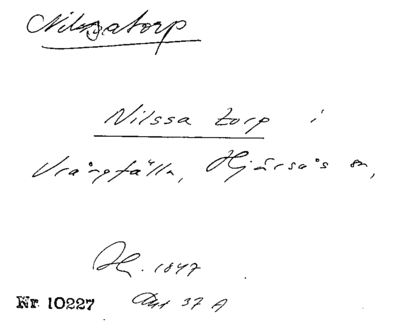 Nilssatorp
Nilssa torp i
Vrångfälla, Hjärsås sn,
Hf. 1847
Nr 10227 Akt 37 A